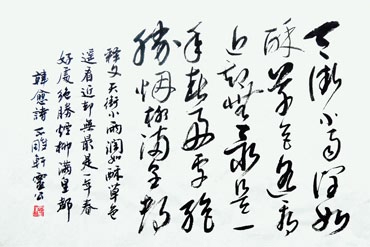 天街小雨润如
酥草色遥看
近却無最是一
年春好處絕
勝煙柳满皇都
释文天街小雨润如酥草色
遥看近却無最是一年春
好處絕勝煙柳满皇都
韓愈詩